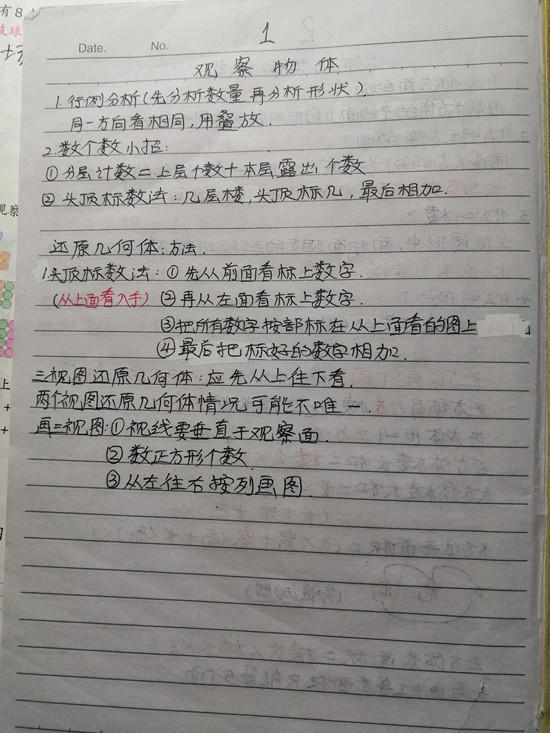 1
Date. No.
观察物体
1.行列分析(先分析数量再分析形状),
同一方向看相同,用叠放.
2.数个数小招:
①分层计数=上层个数+本层露出个数
②头顶标数法:几层楼,头顶标几,最后相加.
还原几何体:方法.
1.头顶标数法:①先从前面看标上数字.
(从上面看入手) ②再从左面看标上数字.
③把所有数字按部标在从上面看的图上
④最后把标好的数字相加.
三视图还原几何体:应先从上往下看.
两个视图还原几何体情况可能不唯一.
画三视图:①视线要垂直于观察面.
②数正方形个数.
③从左往右按列画图.